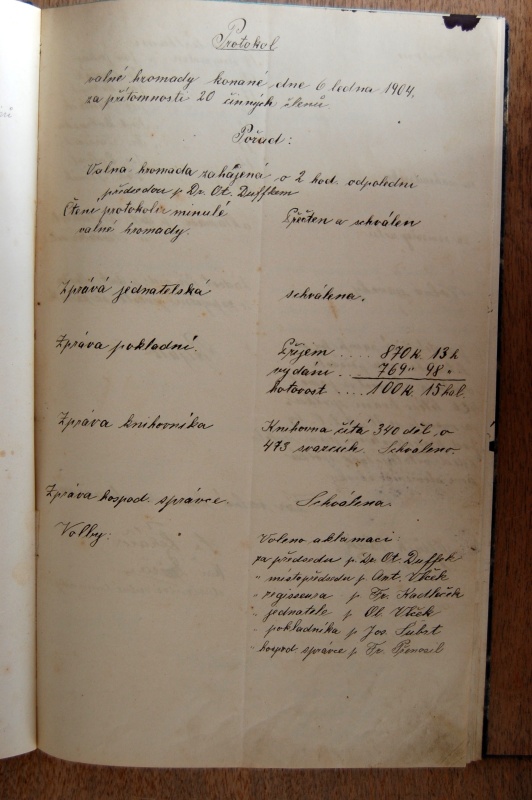 Protokol
valné hromady konané dne 6 ledna 1904.
za přítomnosti 20 činných členů
Pořad:
Valná hromada zahájená o 2 hod. odpoledni
předsedou p. Dr. Ot. Duffkem
Čtení protokolu minulé
valné hromady.
Přečten a schválen
Zpráva jednatelská
schválena.
Zpráva pokladní.
Příjem .... 870 K. 13 h
vydání ... 769 " 98 "
hotovost .... 100 K. 15 hal.
Zpráva knihovníka
Knihovna čítá 340 děl o
473 svazcích. Schváleno
Zpráva hospod. správce.
Schválena.
Volby:
Voleno aklamací:
za předsedu p. Dr. Ot. Duffek
" místopředsedu p. Ant. Vlček
" regisseura p Fr. Kadleček
" jednatele p Ol. Vlček
" pokladníka p Jos. Šubrt
" hospod. správce p. Fr.